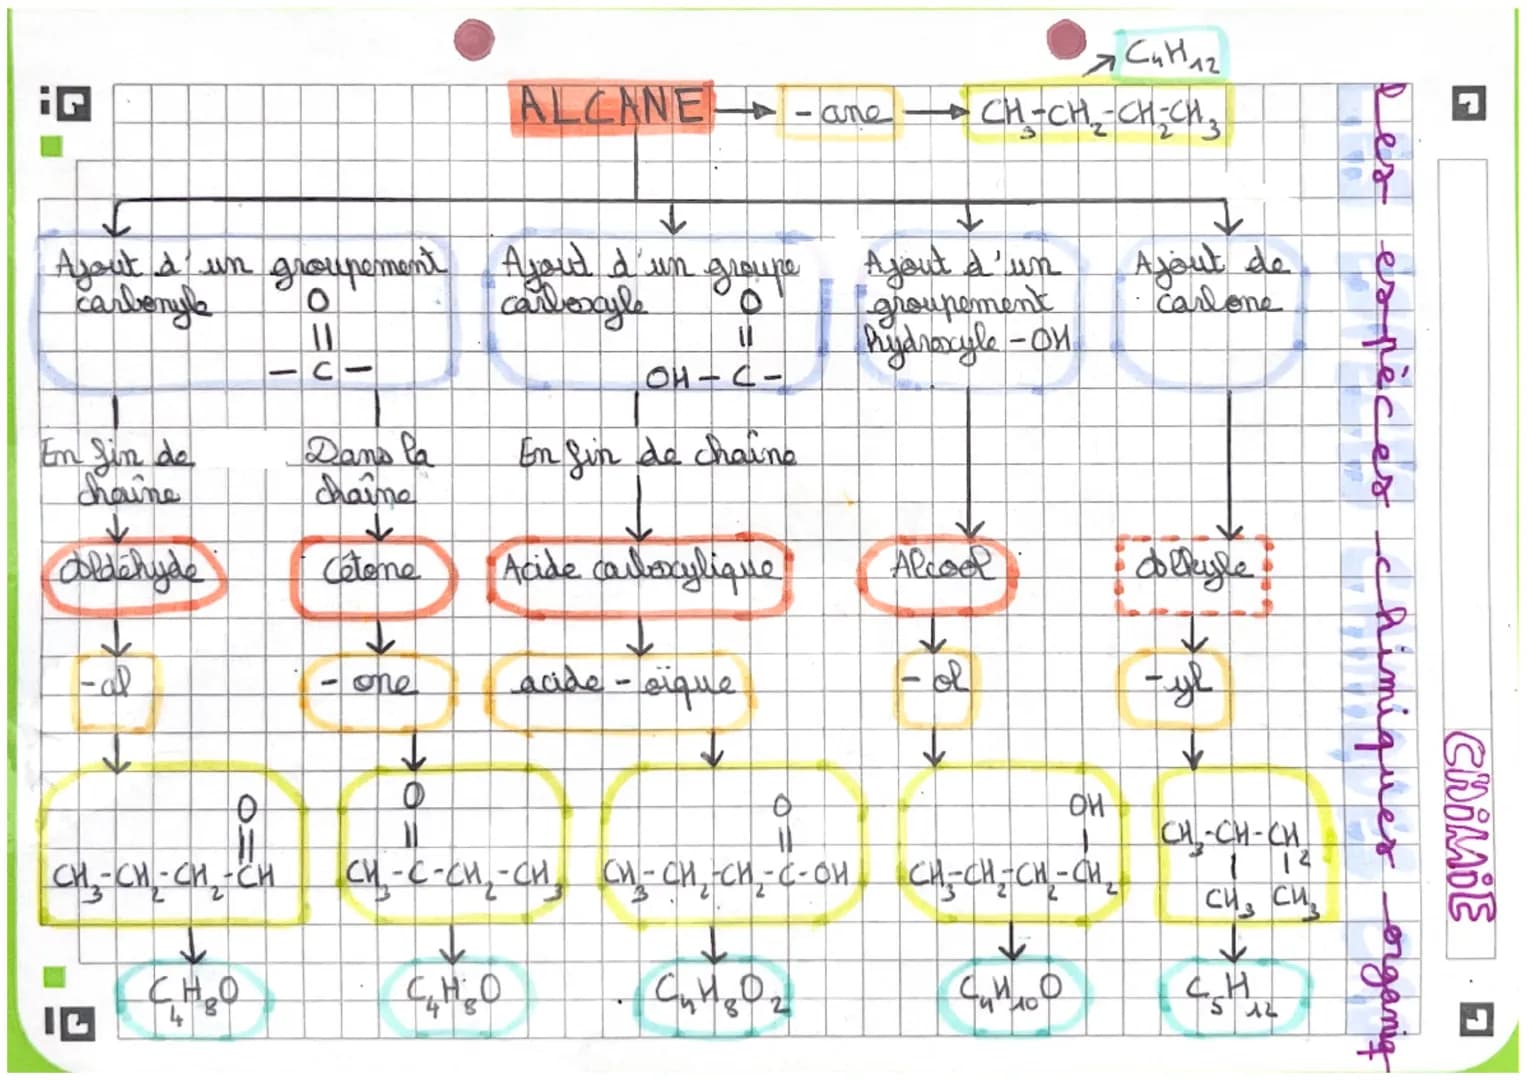 C₄H₁₂
ALCANE → - ane → CH₃-CH₂-CH₂-CH₃
Ajout d'un groupement
carbonyle
O
||
- C -
Ajout d'un groupe
carboxyle
O
||
OH - C -
Ajout d'un
groupement
hydroxyle - OH
Ajout de
carbone
En fin de
chaîne
Dans la
chaîne
En fin de chaîne
Aldéhyde
Cétone
Acide carboxylique
Alcool
Alkyle
- al
- one
acide - oïque
- ol
- yl
O
||
CH₃-CH₂-CH₂-CH
O
||
CH₃-C-CH₂-CH₃
O
||
CH₃-CH₂-CH₂-C-OH
OH
|
CH₃-CH₂-CH₂-CH₂
CH₃-CH-CH₂
| |
CH₃ CH₃
C₄H₈O
C₄H₈O
C₄H₈O₂
C₄H₁₀O
C₅H₁₂
Les espèces chimiques organiq
CHIMIE